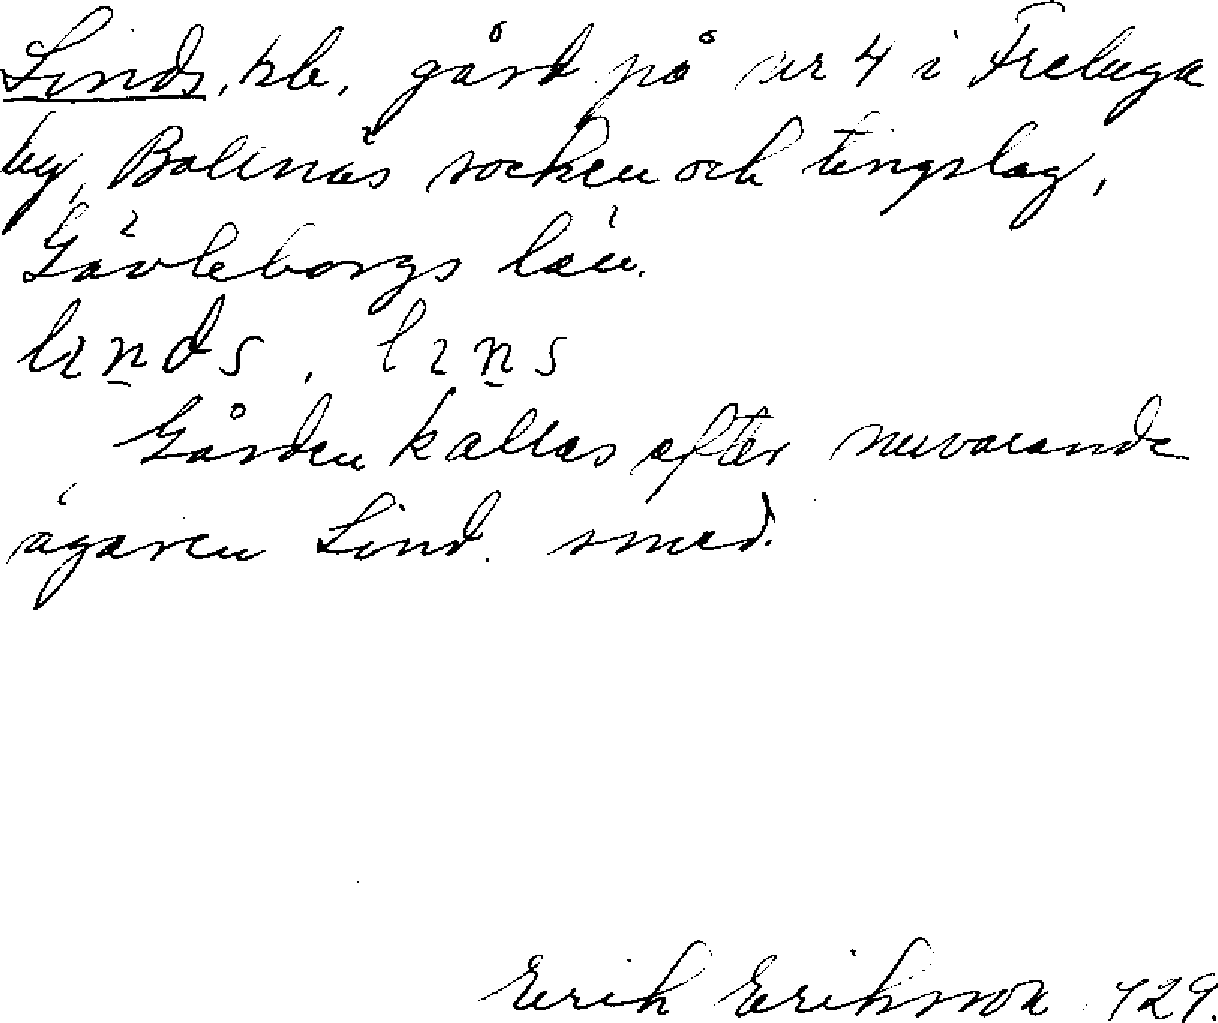 Linds, hb. gård på nr 4 i Freluga
by, Bollnäs socken och tingslag,
Gävleborgs län.
lɩn̠ds, lɩn̠s
Gården kallas efter nuvarande
ägaren Lind. smed.
Erik Eriksson 129.